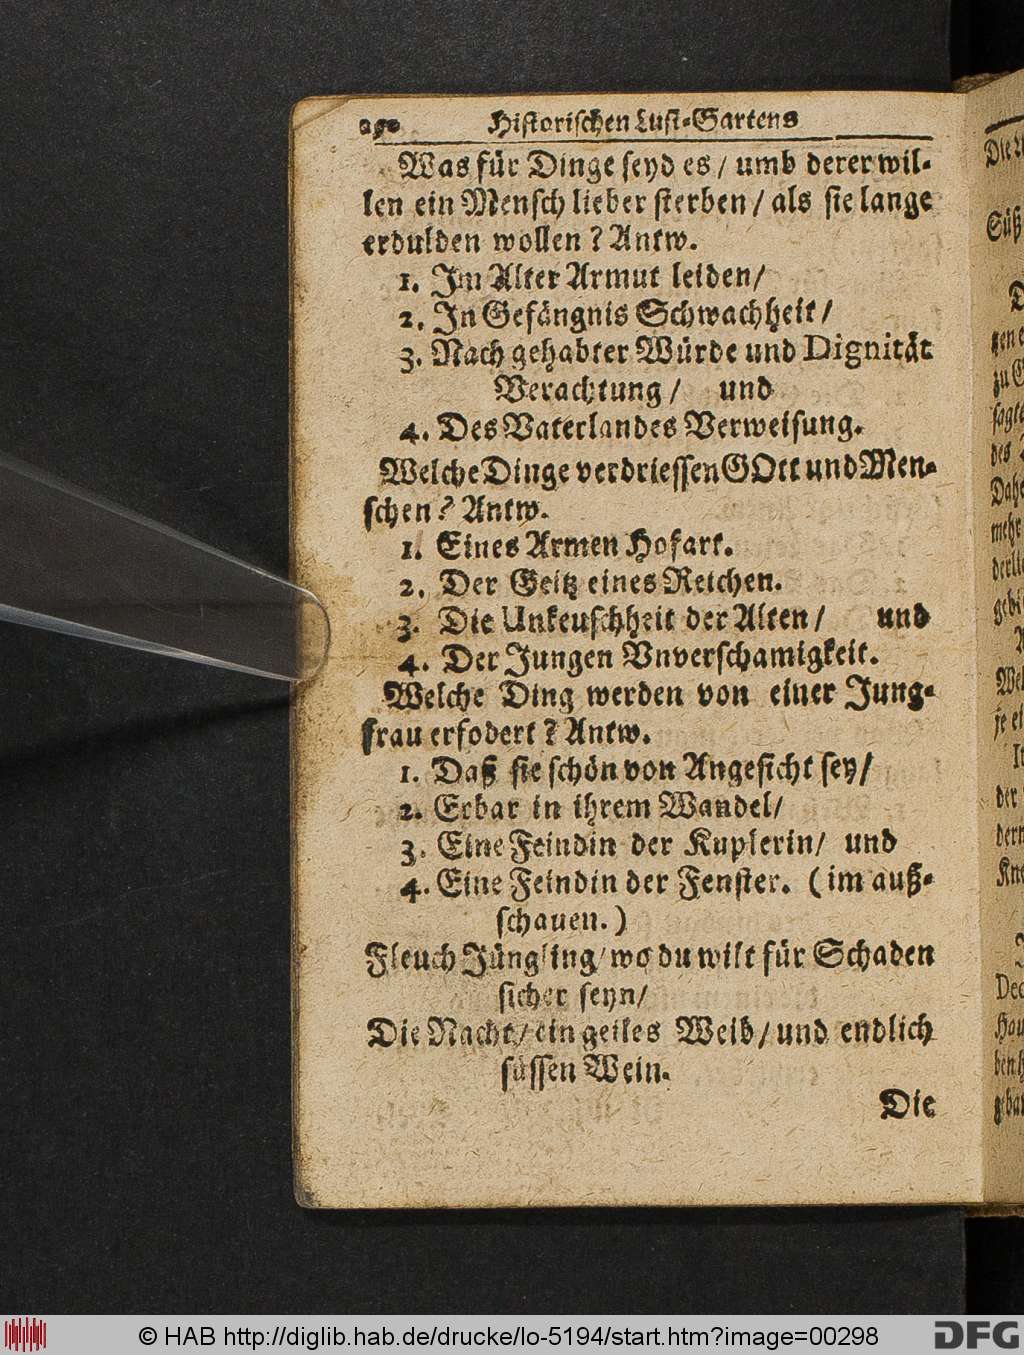 Historischen Lust-Gartens
Was für Dinge seyd es / umb derer wil-
len ein Mensch lieber sterben / als sie lange
erdulden wollen ? Antw.
1. Im Alter Armut leiden /
2. In Gefängnis Schwachheit /
3. Nach gehabter Würde und Dignität
Verachtung / und
4. Des Vaterlandes Verweisung.
Welche Dinge verdriessen GOtt und Men-
schen ? Antw.
1. Eines Armen Hofart.
2. Der Geitz eines Reichen.
3. Die Unkeuschheit der Alten / und
4. Der Jungen Vnverschamigkeit.
Welche Ding werden von einer Jung-
frau erfodert ? Antw.
1. Daß sie schön von Angesicht sey /
2. Erbar in ihrem Wandel /
3. Eine Feindin der Kuplerin / und
4. Eine Feindin der Fenster. ( im auß-
schauen. )
Fleuch Jüngling / wo du wilt für Schaden
sicher seyn /
Die Nacht / ein geiles Weib / und endlich
süssen Wein.
Die
© HAB http://diglib.hab.de/drucke/lo-5194/start.htm?image=00298
DFG